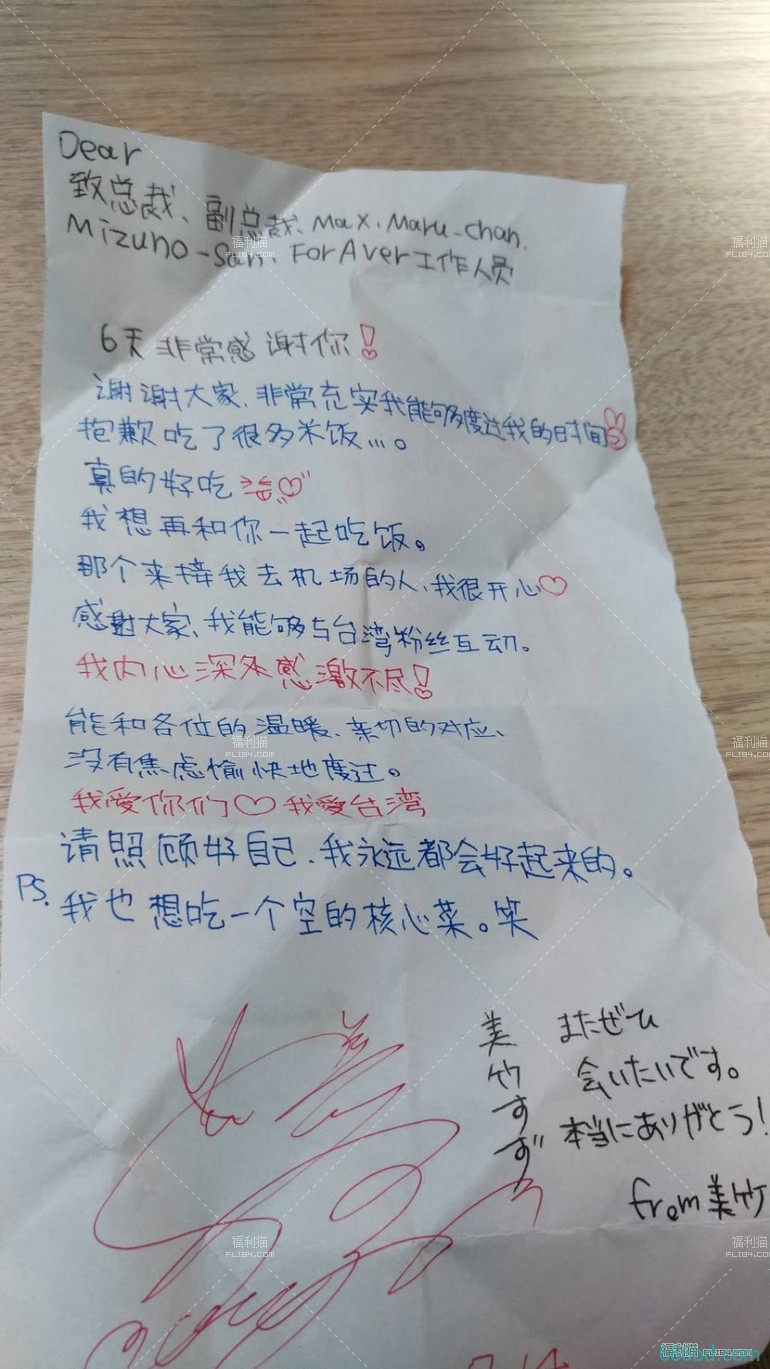 Dear
致总裁、副总裁、Max、Maru-chan、
Mizuno-San、ForAver工作人员
6天 非常感谢你!
谢谢大家、非常充实我能够度过我的时间
抱歉吃了很多米饭…。
真的好吃
我想再和你一起吃饭。
那个来接我去机场的人、我很开心♡
感谢大家、我能够与台湾粉丝互动。
我内心深处感激不尽!
能和各位的温暖、亲切的对应、
没有焦虑愉快地度过。
我爱你们♡我爱台湾
请照顾好自己、我永远都会好起来的。
PS. 我也想吃一个空的核心菜。笑
美竹すず
またぜひ
会いたいです。
本当にありがとう!
from美竹
福利猫
FLI84.COM
福利猫
FLI84.COM
福利猫
FLI84.COM
福利猫
FLI84.COM
福利猫
FLI84.COM
福利猫
FLI84.COM
福利猫 FLI84.COM